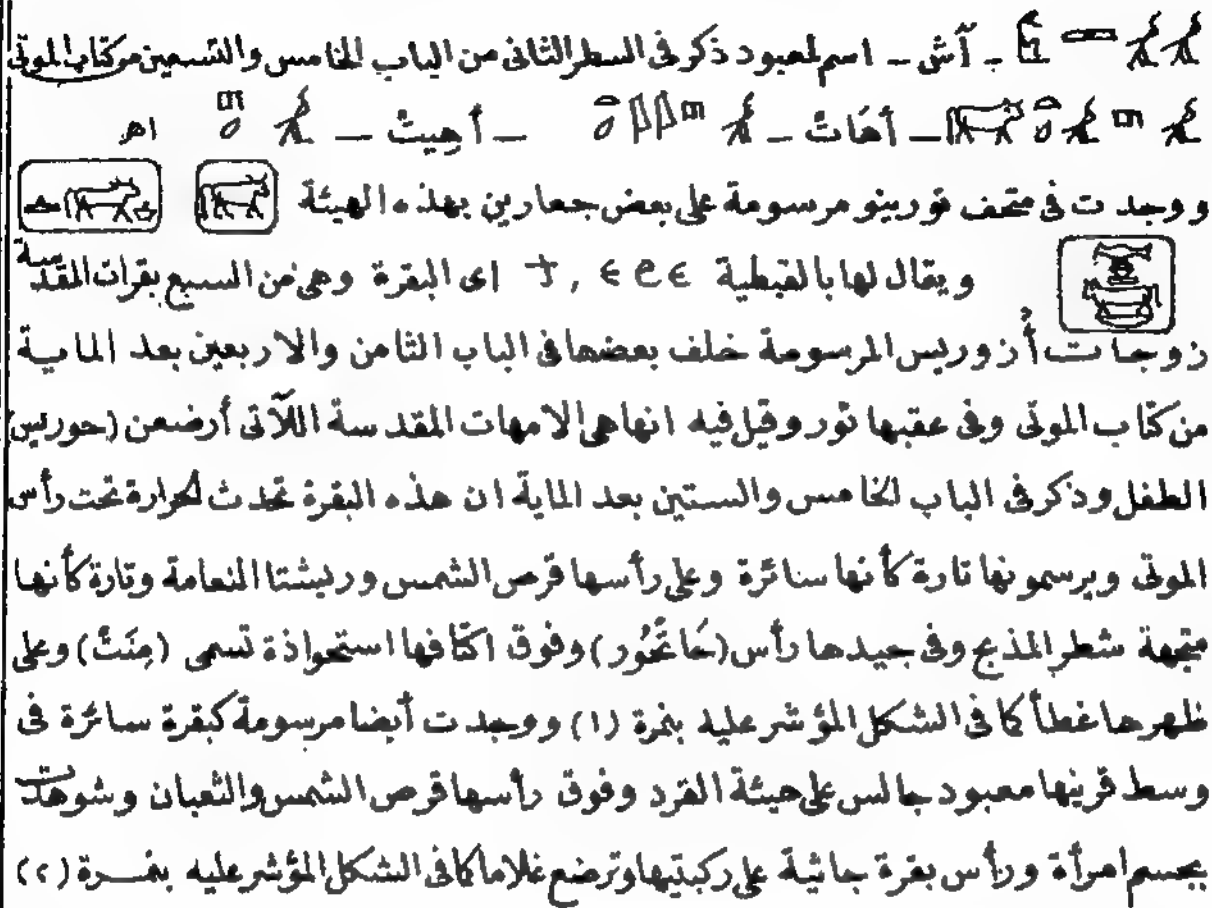 𓄿𓄿𓈙𓀭 ـ آش ـ اسم لمعبود ذكر فى السطر الثانى من الباب الخامس والتسعين من كتاب الموتى
ـ أهَاتْ ـ ـ أهِيتْ ـ اهـ
ووجدت فى متحف تورينو مرسومة على بعض جعارين بهذه الهيئة
ويقال لها بالقبطية ϯ , ⲉϩⲉ اى البقرة وهى من السبع بقرات المقدسة
زوجات أُزوريس المرسومة خلف بعضها فى الباب الثامن والاربعين بعد الماية
من كتاب الموتى وفى عقبها ثور وقيل فيه انها هى الامهات المقدسة اللآتى أرضعن (حوريس)
الطفل وذكر فى الباب الخامس والستين بعد الماية ان هذه البقرة تحدث الحرارة تحت رأس
الموتى ويرسمونها تارة كأنها سائرة وعلى رأسها قرص الشمس وريشتا النعامة وتارة كأنها
متجهة شطر المذبح وفى جيدها رأس (حَاتْحُور) وفوق اكتافها استحواذة تسمى (مِنَتْ) وعلى
ظهرها غطأ كما فى الشكل المؤشر عليه بنمرة (١) ووجدت أيضا مرسومة كبقرة سائرة فى
وسط قرنيها معبود جالس على هيئة القرد وفوق رأسها قرص الشمس والثعبان وشوهدت
بجسم امرأة ورأس بقرة جاثية على ركبتيها وترضع غلاما كما فى الشكل المؤشر عليه بنمــرة (٢)